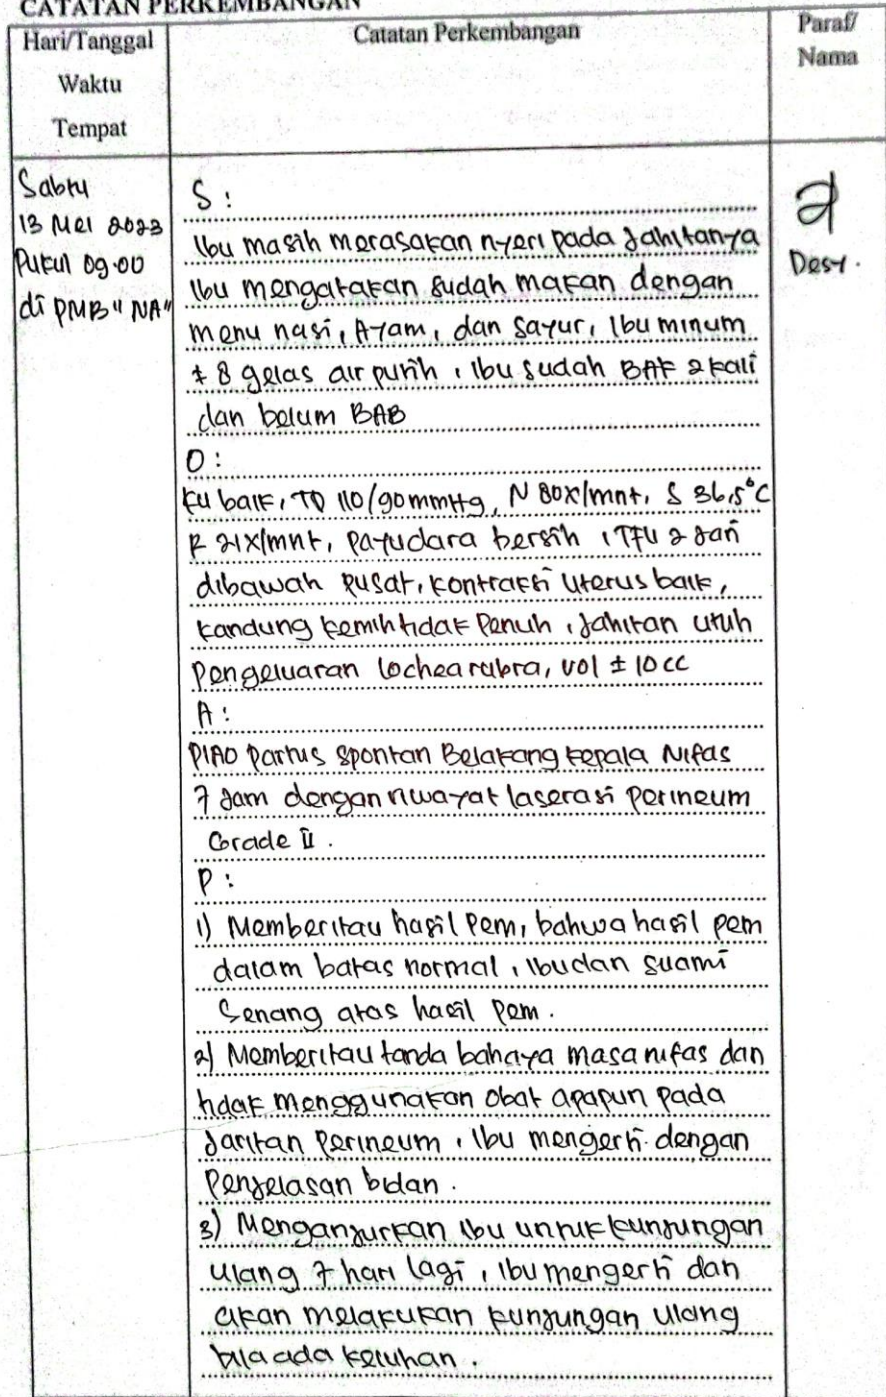 CATATAN PERKEMBANGAN
Hari/Tanggal
Waktu
Tempat
Catatan Perkembangan
Paraf/
Nama
Sabtu
13 Mei 2023
Pukul 09.00
di PMB "NA"
Desy.
S :
Ibu masih merasakan nyeri pada jahitanya
Ibu mengatakan sudah makan dengan
menu nasi, Ayam, dan sayur, Ibu minum
± 8 gelas air putih, ibu sudah BAK 2 kali
dan belum BAB
O :
KU baik, TD 110/90 mmHg, N 80x/mnt, S 36,5°C
R 21x/mnt, payudara bersih, TFU 2 jari
dibawah pusat, kontraksi uterus baik,
kandung kemih tidak penuh, jahitan utuh
pengeluaran lochea rubra, vol ± 10 cc
A :
P1A0 Partus Spontan Belakang kepala Nifas
7 jam dengan riwayat laserasi perineum
Grade II.
P :
1) Memberitau hasil pem, bahwa hasil pem
dalam batas normal, Ibu dan suami
senang atas hasil pem.
2) Memberitau tanda bahaya masa nifas dan
tidak menggunakan obat apapun pada
jaritan perineum, Ibu mengerti dengan
penjelasan bidan.
3) Menganjurkan ibu untuk kunjungan
ulang 7 hari lagi, ibu mengerti dan
akan melakukan kunjungan ulang
bila ada keluhan.